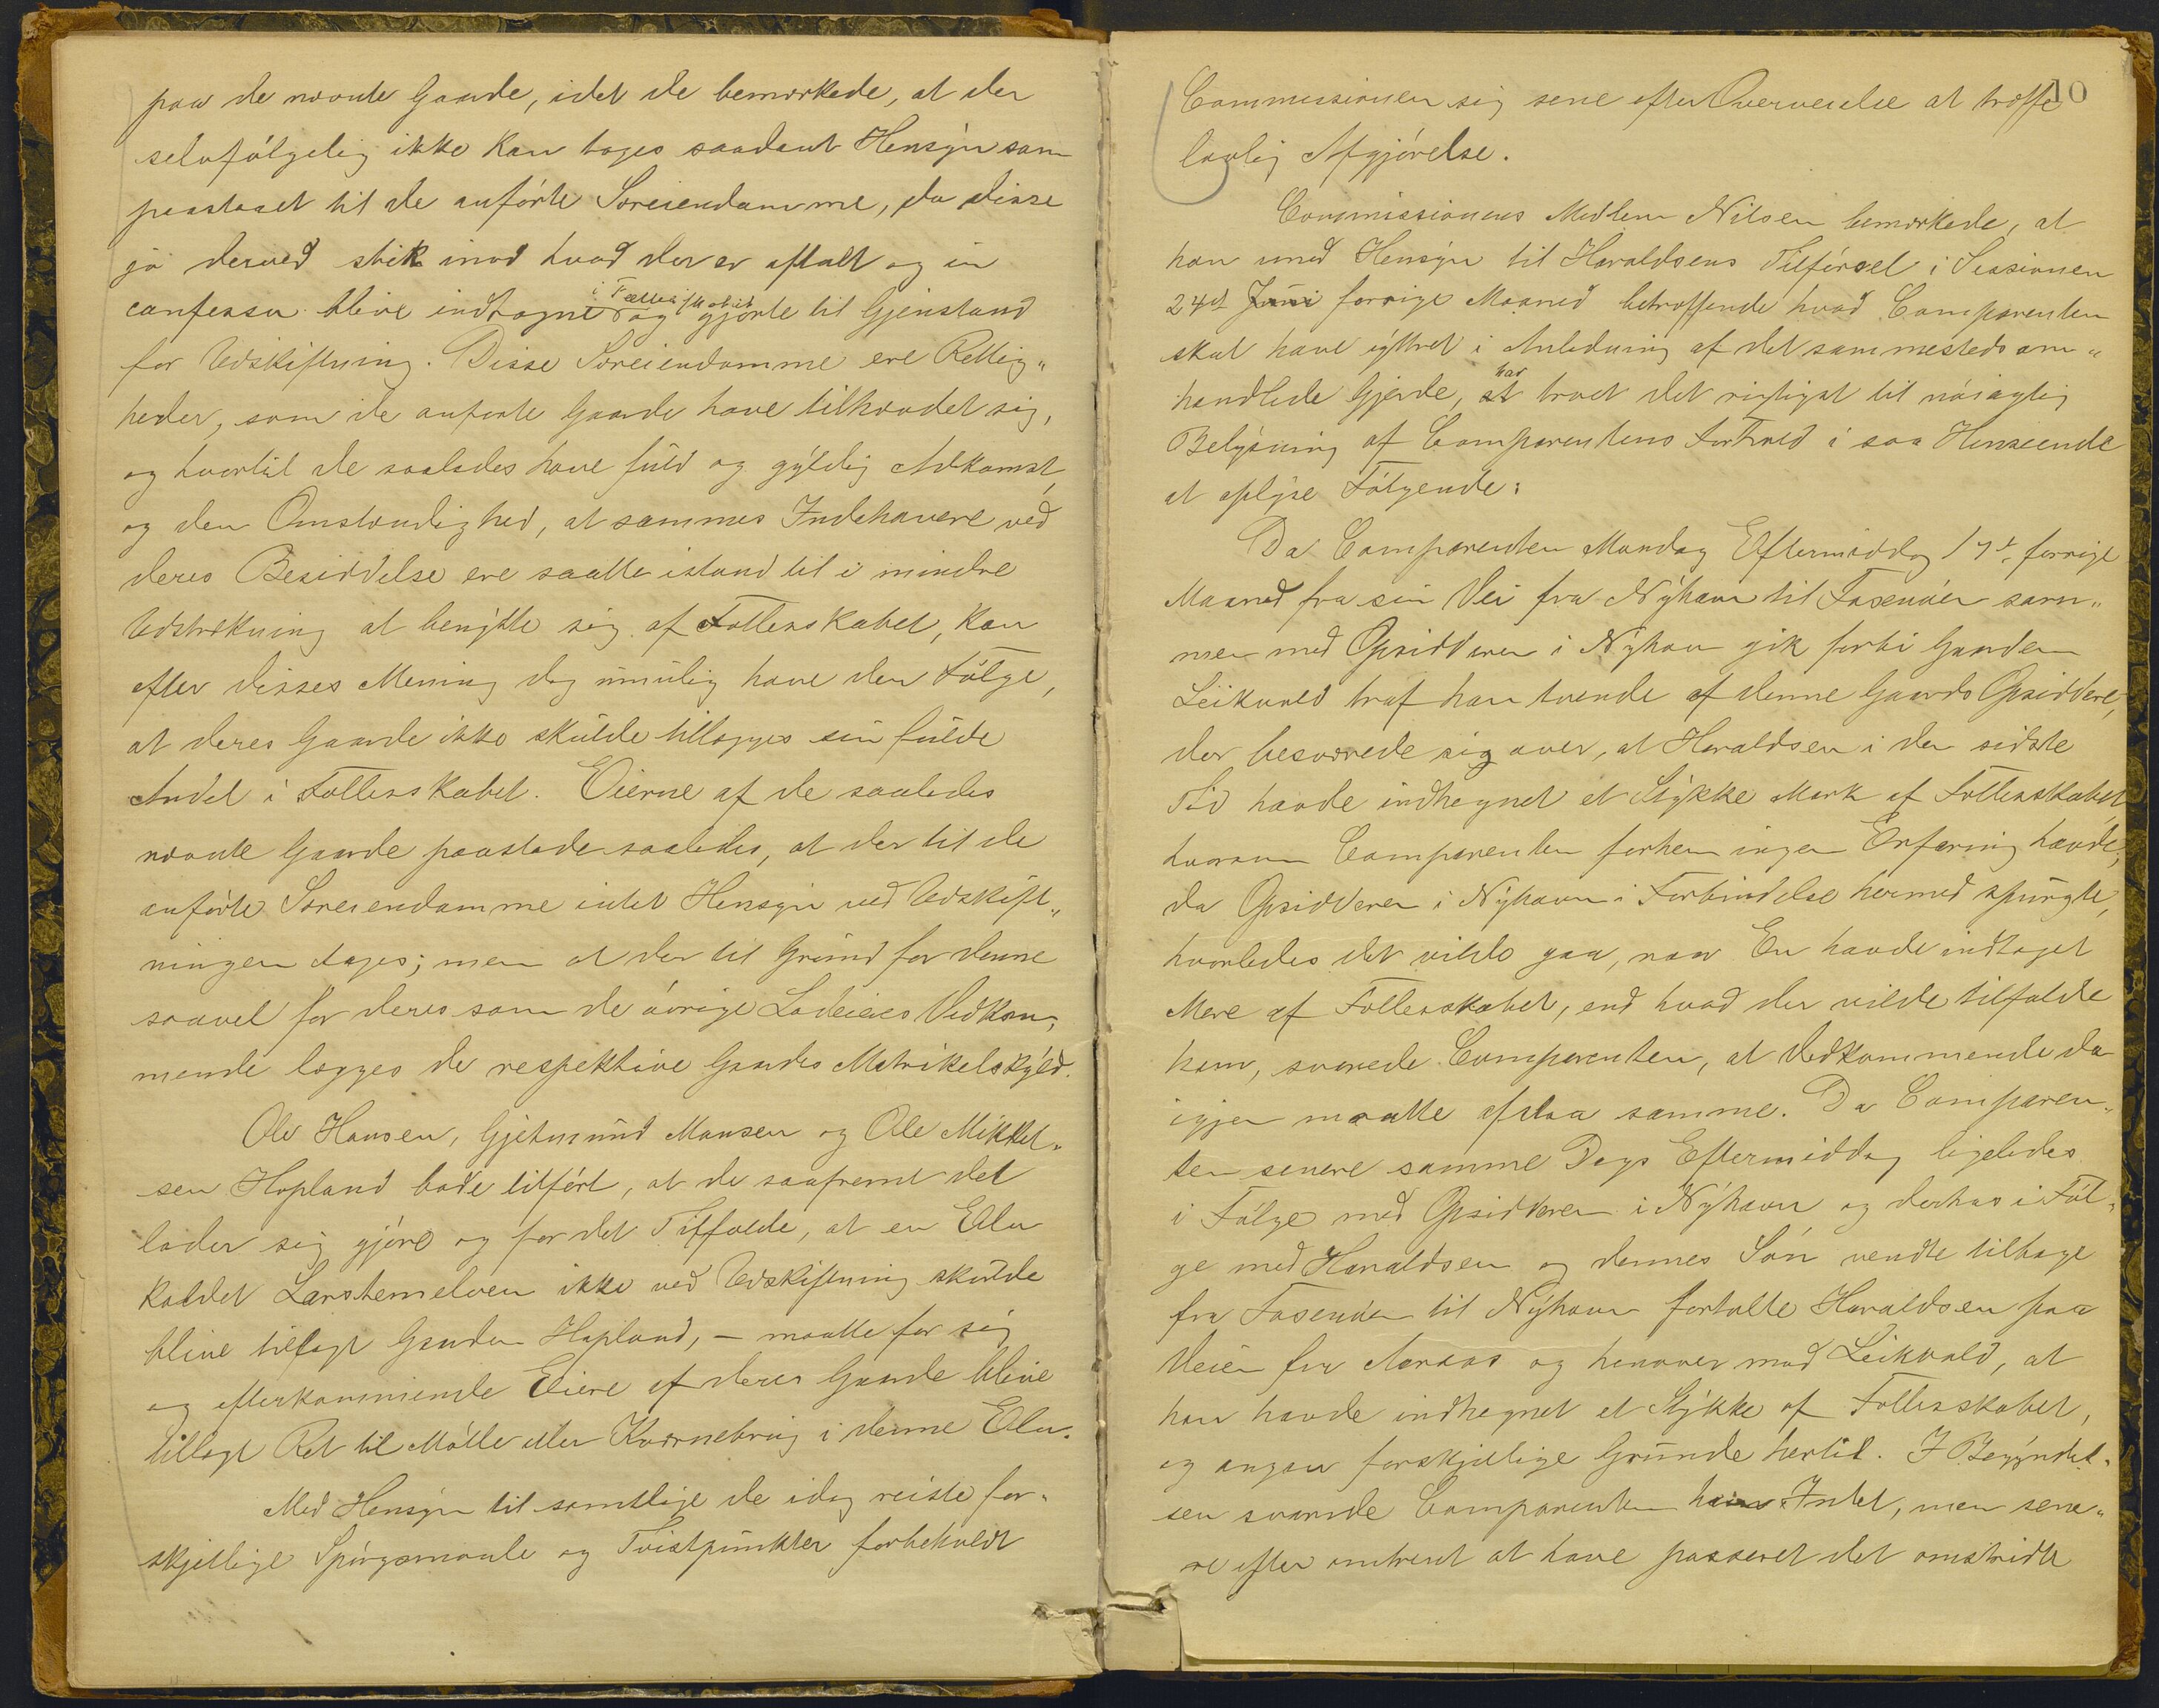 paa de nævnte Gaarde, idet de bemærkede, at der
selvfölgelig ikke kan tages saadant Hensyn som
paastaaet til de anförte Særeiendomme, da disse
jo derved stik imod hvad der er aftalt og in
confesso blive indtagne i Fællesskabet og gjorte til Gjenstand
for Udskiftning. Disse Særeiendomme ere Rettig„
heder, som de anförte Gaarde have tilhævdet sig,
og hvortil de saaledes have fuld og gyldig Adkomst,
og den Omstændighed, at sammes Indehavere ved
deres Besiddelse ere saatte istand til i mindre
Udstrekning at benytte sig af Fællesskabet, kan
efter disses Mening dog umulig have den Fölge,
at deres Gaarde ikke skulde tillægges sin fulde
Andel i Fællesskabet. Eierne af de saaledes
nævnte Gaarde paastode saaledes, at der til de
anförte Særeiendomme intet Hensyn ved Udskift„
ningen tages; men at der til Grund for denne
saavel for deres som de övrige Lodeieres Vedkom„
mende lægges de respektive Gaardes Matrikelskyld.
Ole Hansen, Gjetmund Mansen og Ole Mikkel„
sen Hopland bade tilfört, at de saafremt det
lader sig gjöre og for det Tilfælde, at en Elv
kaldet Larstemelven ikke ved Udskiftning skulde
blive tillagt Gaarden Hopland, – maatte for sig
og efterkommende Eiere af deres Gaarde blive
tillagt Ret til Mölle eller Kværnebrug i denne Elv.
Med Hensyn til samtlige de idag reiste for„
skjellige Spörgsmaale og Tvistpunkter forbeholdt
10
Commissionen sig sene efter Overveielse at træffe
lovlig Afgjörelse.
Commissionens Medlem Nilsen bemærkede, at
han med Hensyn til Haraldsens Tilförsel i Sessionen
24de Juni forrige Maaned betræffende hvad Comparenten
skal have yttret i Anledning af det sammesteds om„
handlede Gjerde, at har troet det rigtigst til nöiagtig
Belysning af Comparentens Forhold i saa Henseende
at oplyse Fölgende:
Da Comparenten Mandag Eftermiddag 17de forrige
Maaned fra sin Vei fra Nyhavn til Fosenöen sam„
men med Opsidderen i Nyhavn gik forbi Gaarden
Leikvold traf han tvende af denne Gaards Opsiddere,
der besværede sig over, at Haraldsen i den sidste
Tid havde indhegnet et Stykke Mark af Fællesskabet,
hvorom Comparenten forhen ingen Erfaring havde;
da Opsidderen i Nyhavn i Forbindelse hermed spurgte,
hvorledes det vilde gaa, naar En havde indtaget
Mere af Fællesskabet, end hvad der vilde tilfalde
ham, svarede Comparenten, at Vedkommende da
igjen maatte afstaa samme. Da Comparen„
ten senere samme Dags Eftermiddag ligeledes
i Fölge med Opsidderen i Nyhavn og derhos i Föl„
ge med Haraldsen og dennes Sön vendte tilbage
fra Fosenöen til Nyhavn fortalte Haraldsen paa
Veien fra Aaraas og henover mod Leikvold, at
han havde indhegnet et Stykke af Fællesskabet,
og angav forskjellige Grunde hertil. I Begyndel„
sen svarede Comparenten ham Intet, men sene„
re efter omtrent at have passeret det omstridte